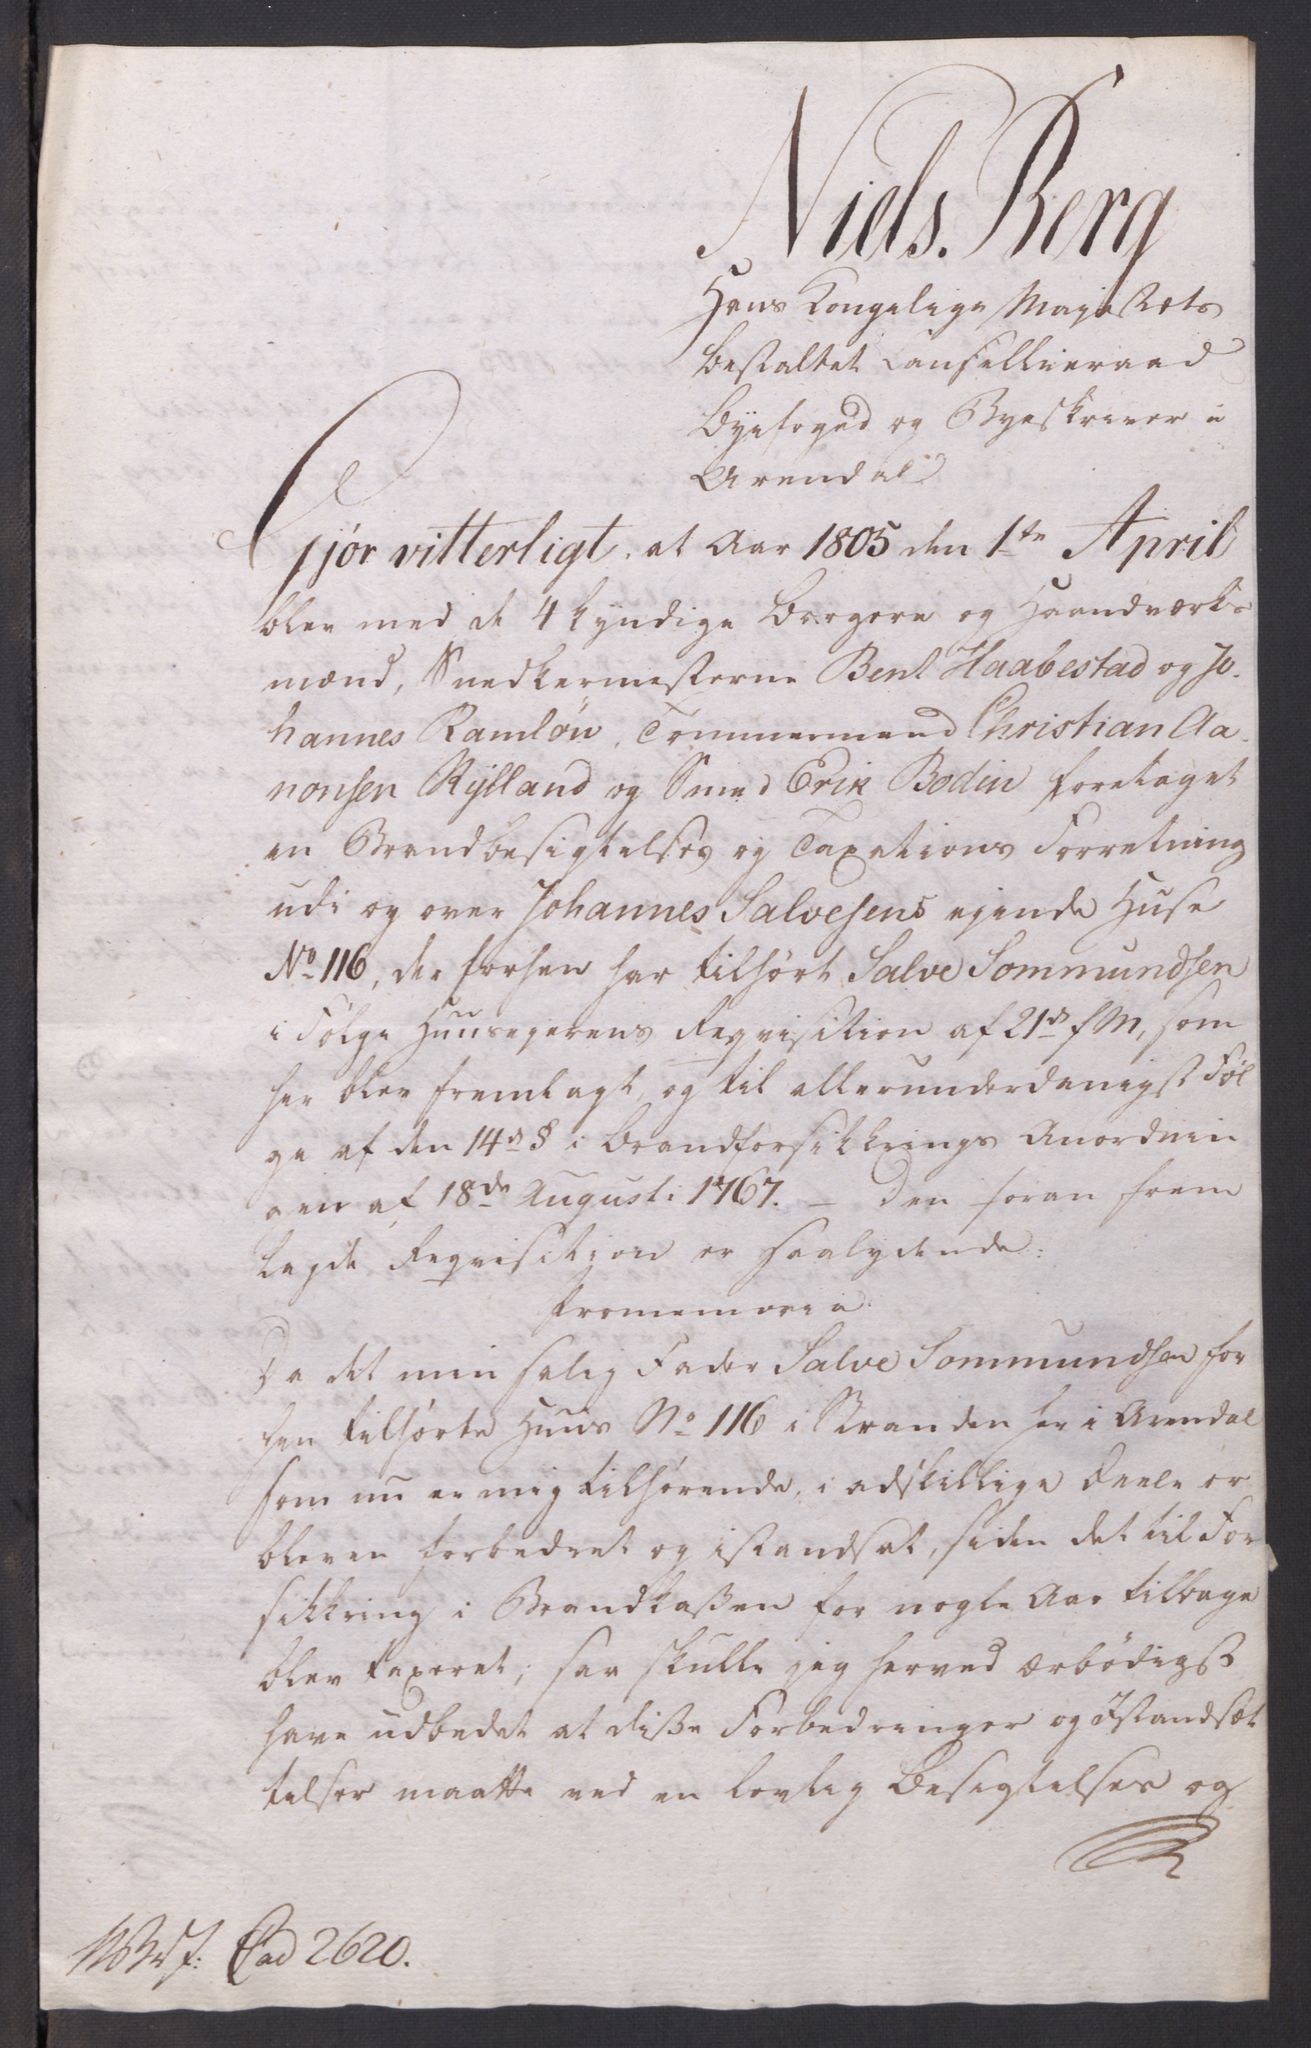 Niels. Berg
Hans Kongelige Majestæts
bestalter Cancellieraad
Byefoged og Byeskriver i
Arendal
Gjör vitterligt, at Aar 1805 den 1te April
blev med de 4 kyndige Borgere og Haandværks
mænd, Snedkermesterne Bent Haabestad og Jo-
hannes Ramlöw, Tømmermand Christian Aa-
nonsen Rylland og Smed Erik Bodin foretaget
en Brandbesigtelses og Taxations Forretning
udi og over Johannes Salvesens ejende Huse
No 116, der forhen har tilhørt Salve Sommundsen
i Følge Huuseyerens Reqvisition af 21de f M, som
her blev fremlagt, og til allerunderdanigst Føl
ge af den 14de § i Brandforsikkrings Anordnin
gen af 18de Augusti 1767. – Den foran frem
lagde Reqvisition er saalydende:
Promemoria
Da det min salig Fader Salve Sommundsen for
hen tilhørte Huus No 116 i Stranden her i Arendal
som nu er mig tilhørende, i adskillige Deele er
bleven forbedret og istandsat, siden det til For
sikkring i Brandkaßen for nogle Aar tilbage
blev taxeret; saa skulle jeg herved ærbödigst
have udbedet at diße Forbedringer og Istandsæt
telser maatte ved en lovlig Besigtelses og
Fad 2620.